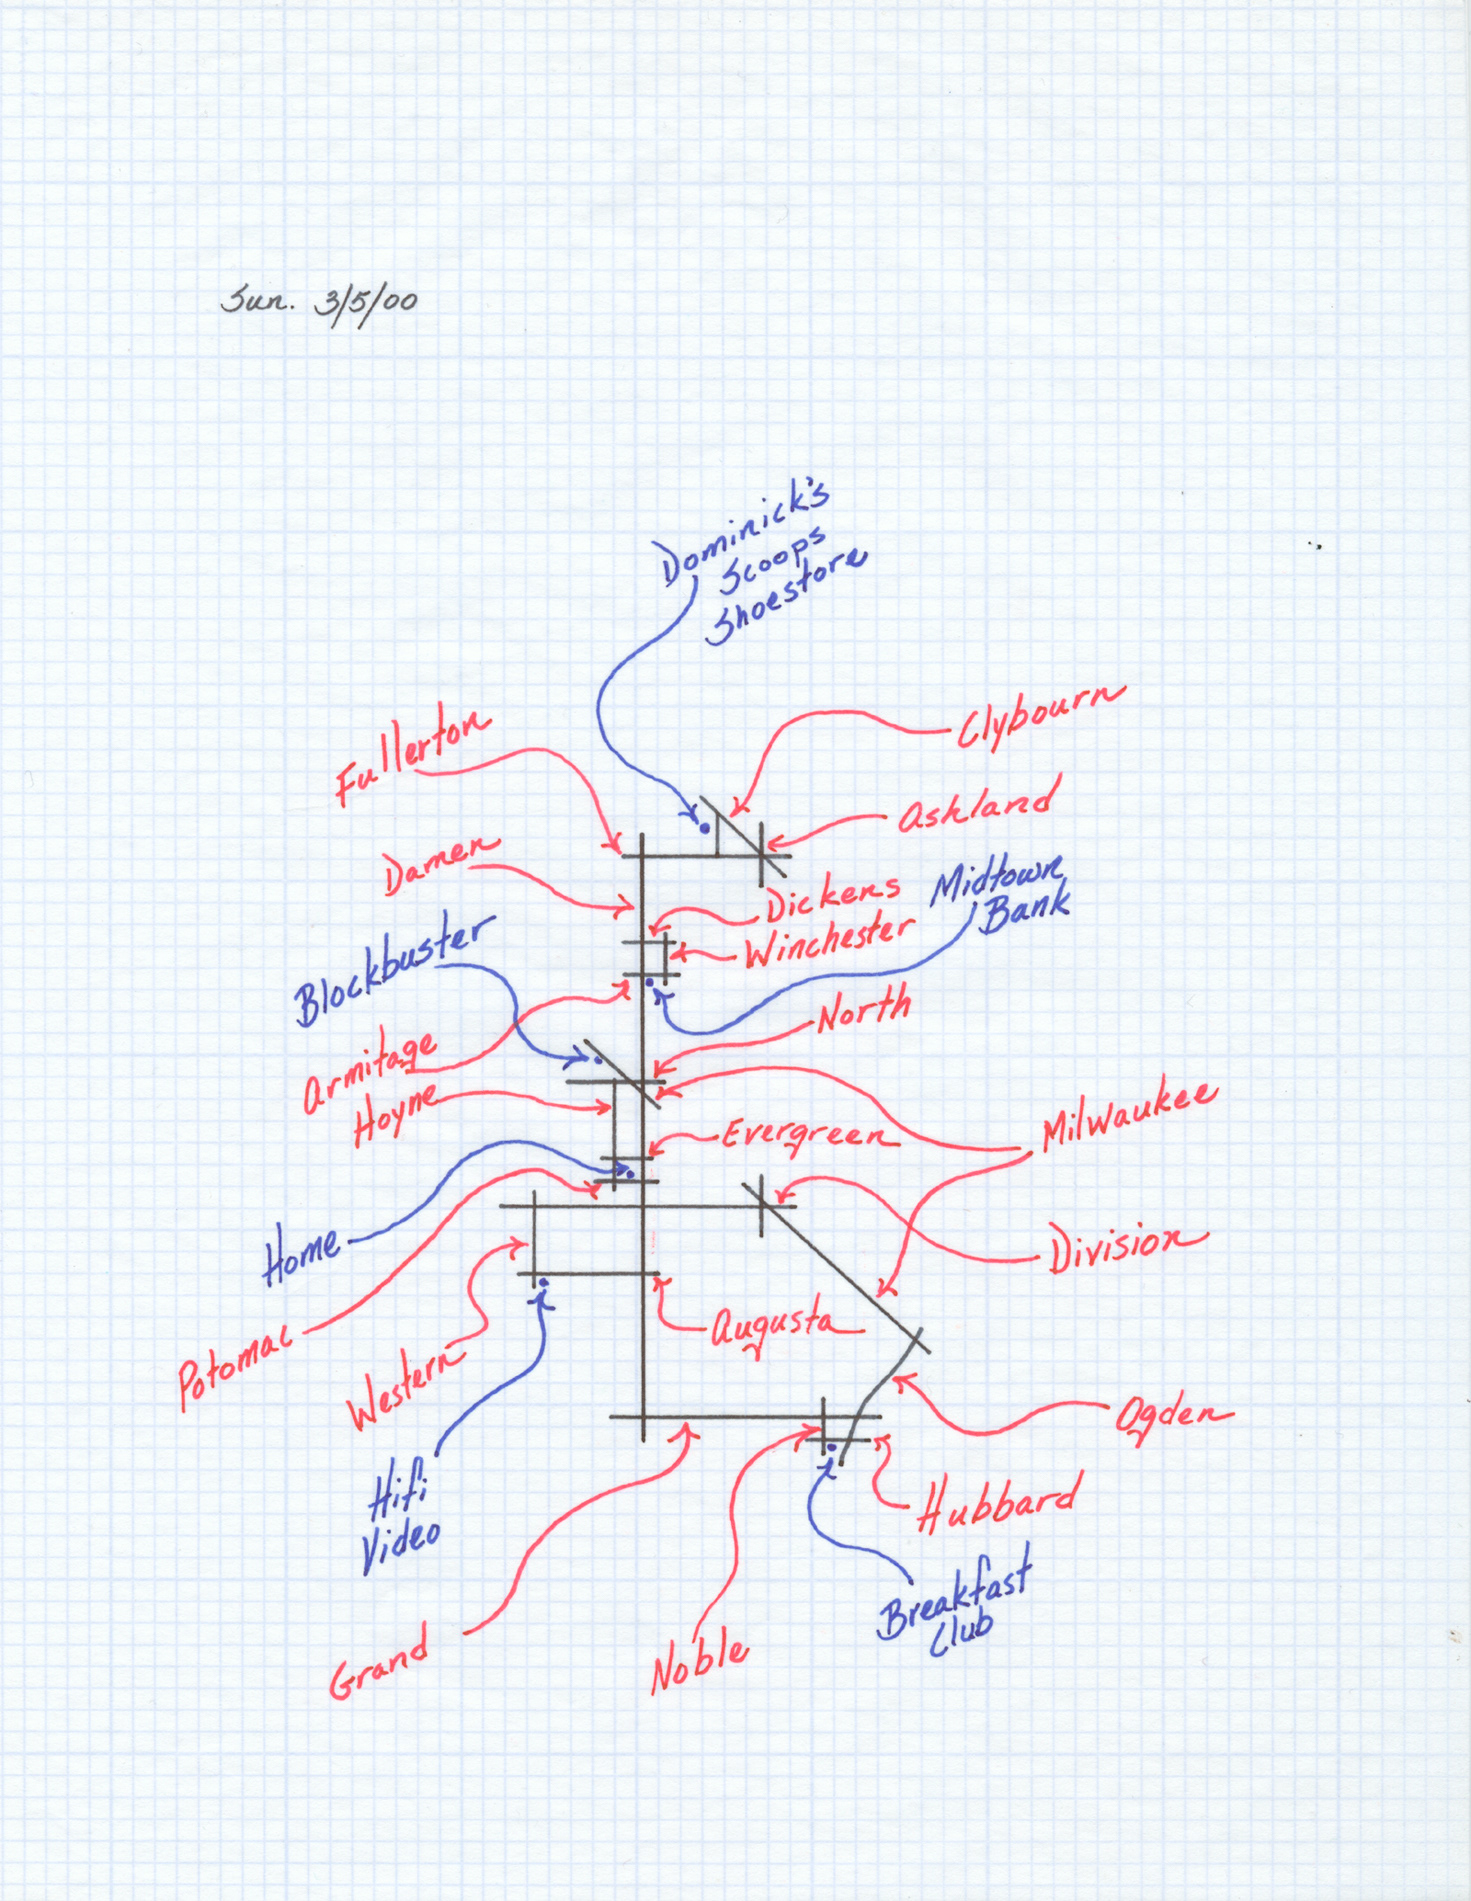 Sun. 3/5/00
Dominick's
Scoops
Shoestore
Clybourn
Fullerton
Ashland
Damen
Dickens
Midtown
Bank
Winchester
Blockbuster
North
Armitage
Hoyne
Milwaukee
Evergreen
Home
Division
Potomac
Augusta
Western
Ogden
Hifi
Video
Hubbard
Breakfast
Club
Grand
Noble